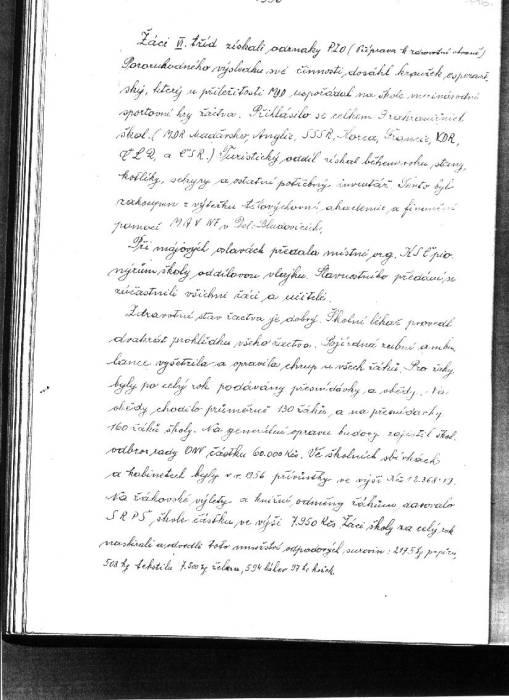 Žáci VI. tříd získali odznaky PZO (Příprava k zdravotní obraně)
Pozoruhodného výsledku své činnosti dosáhl kroužek esperant-
ský, který u příležitosti MDD uspořádal na škole mezinárodní
sportovní hry žactva. Přihlásilo se celkem 7 zahraničních
škol. (MDR Maďarsko, Anglie, SSSR, Korea, Francie, KDR,
ČLD, a ČSR.) Turistický oddíl získal během roku, stany,
kotlíky, sekyry a ostatní potřebný inventář. Tento byl
zakoupen z výtěžku tělovýchovné akademie a finanční
pomocí MNV NF v Dol. Bludovicích.
Při májových oslavách předala místní org. KSČ pio-
nýrům školy oddílovou vlajku. Slavnostního předání se
zúčastnili všichni žáci a učitelé.
Zdravotní stav žactva je dobrý. Školní lékař provedl
dvakrát prohlídku všeho žactva. Pojízdná zubní ambu-
lance vyšetřila a opravila chrup u všech žáků. Pro žáky
byly po celý rok podávány přesnídávky a obědy. Na
obědy chodilo průměrně 130 žáků, a na přesnídávky
160 žáků školy. Na generální opravu budovy zajistil škol.
odbor rady ONV částku 60.000 Kčs. Ve školních sbírkách
a kabinetech byly v r. 1956 přírůstky ve výši Kčs 12.368.19.
Na žákovské výlety a knižní odměny žákům darovalo
SRPŠ, škole částku ve výši 7.950 Kčs. Žáci školy za celý rok
nasbírali a odvedli toto množství odpadových surovin: 2175 kg papíru,
508 kg textilu 7.500 kg železa, 594 lahev 97 kg kostí.